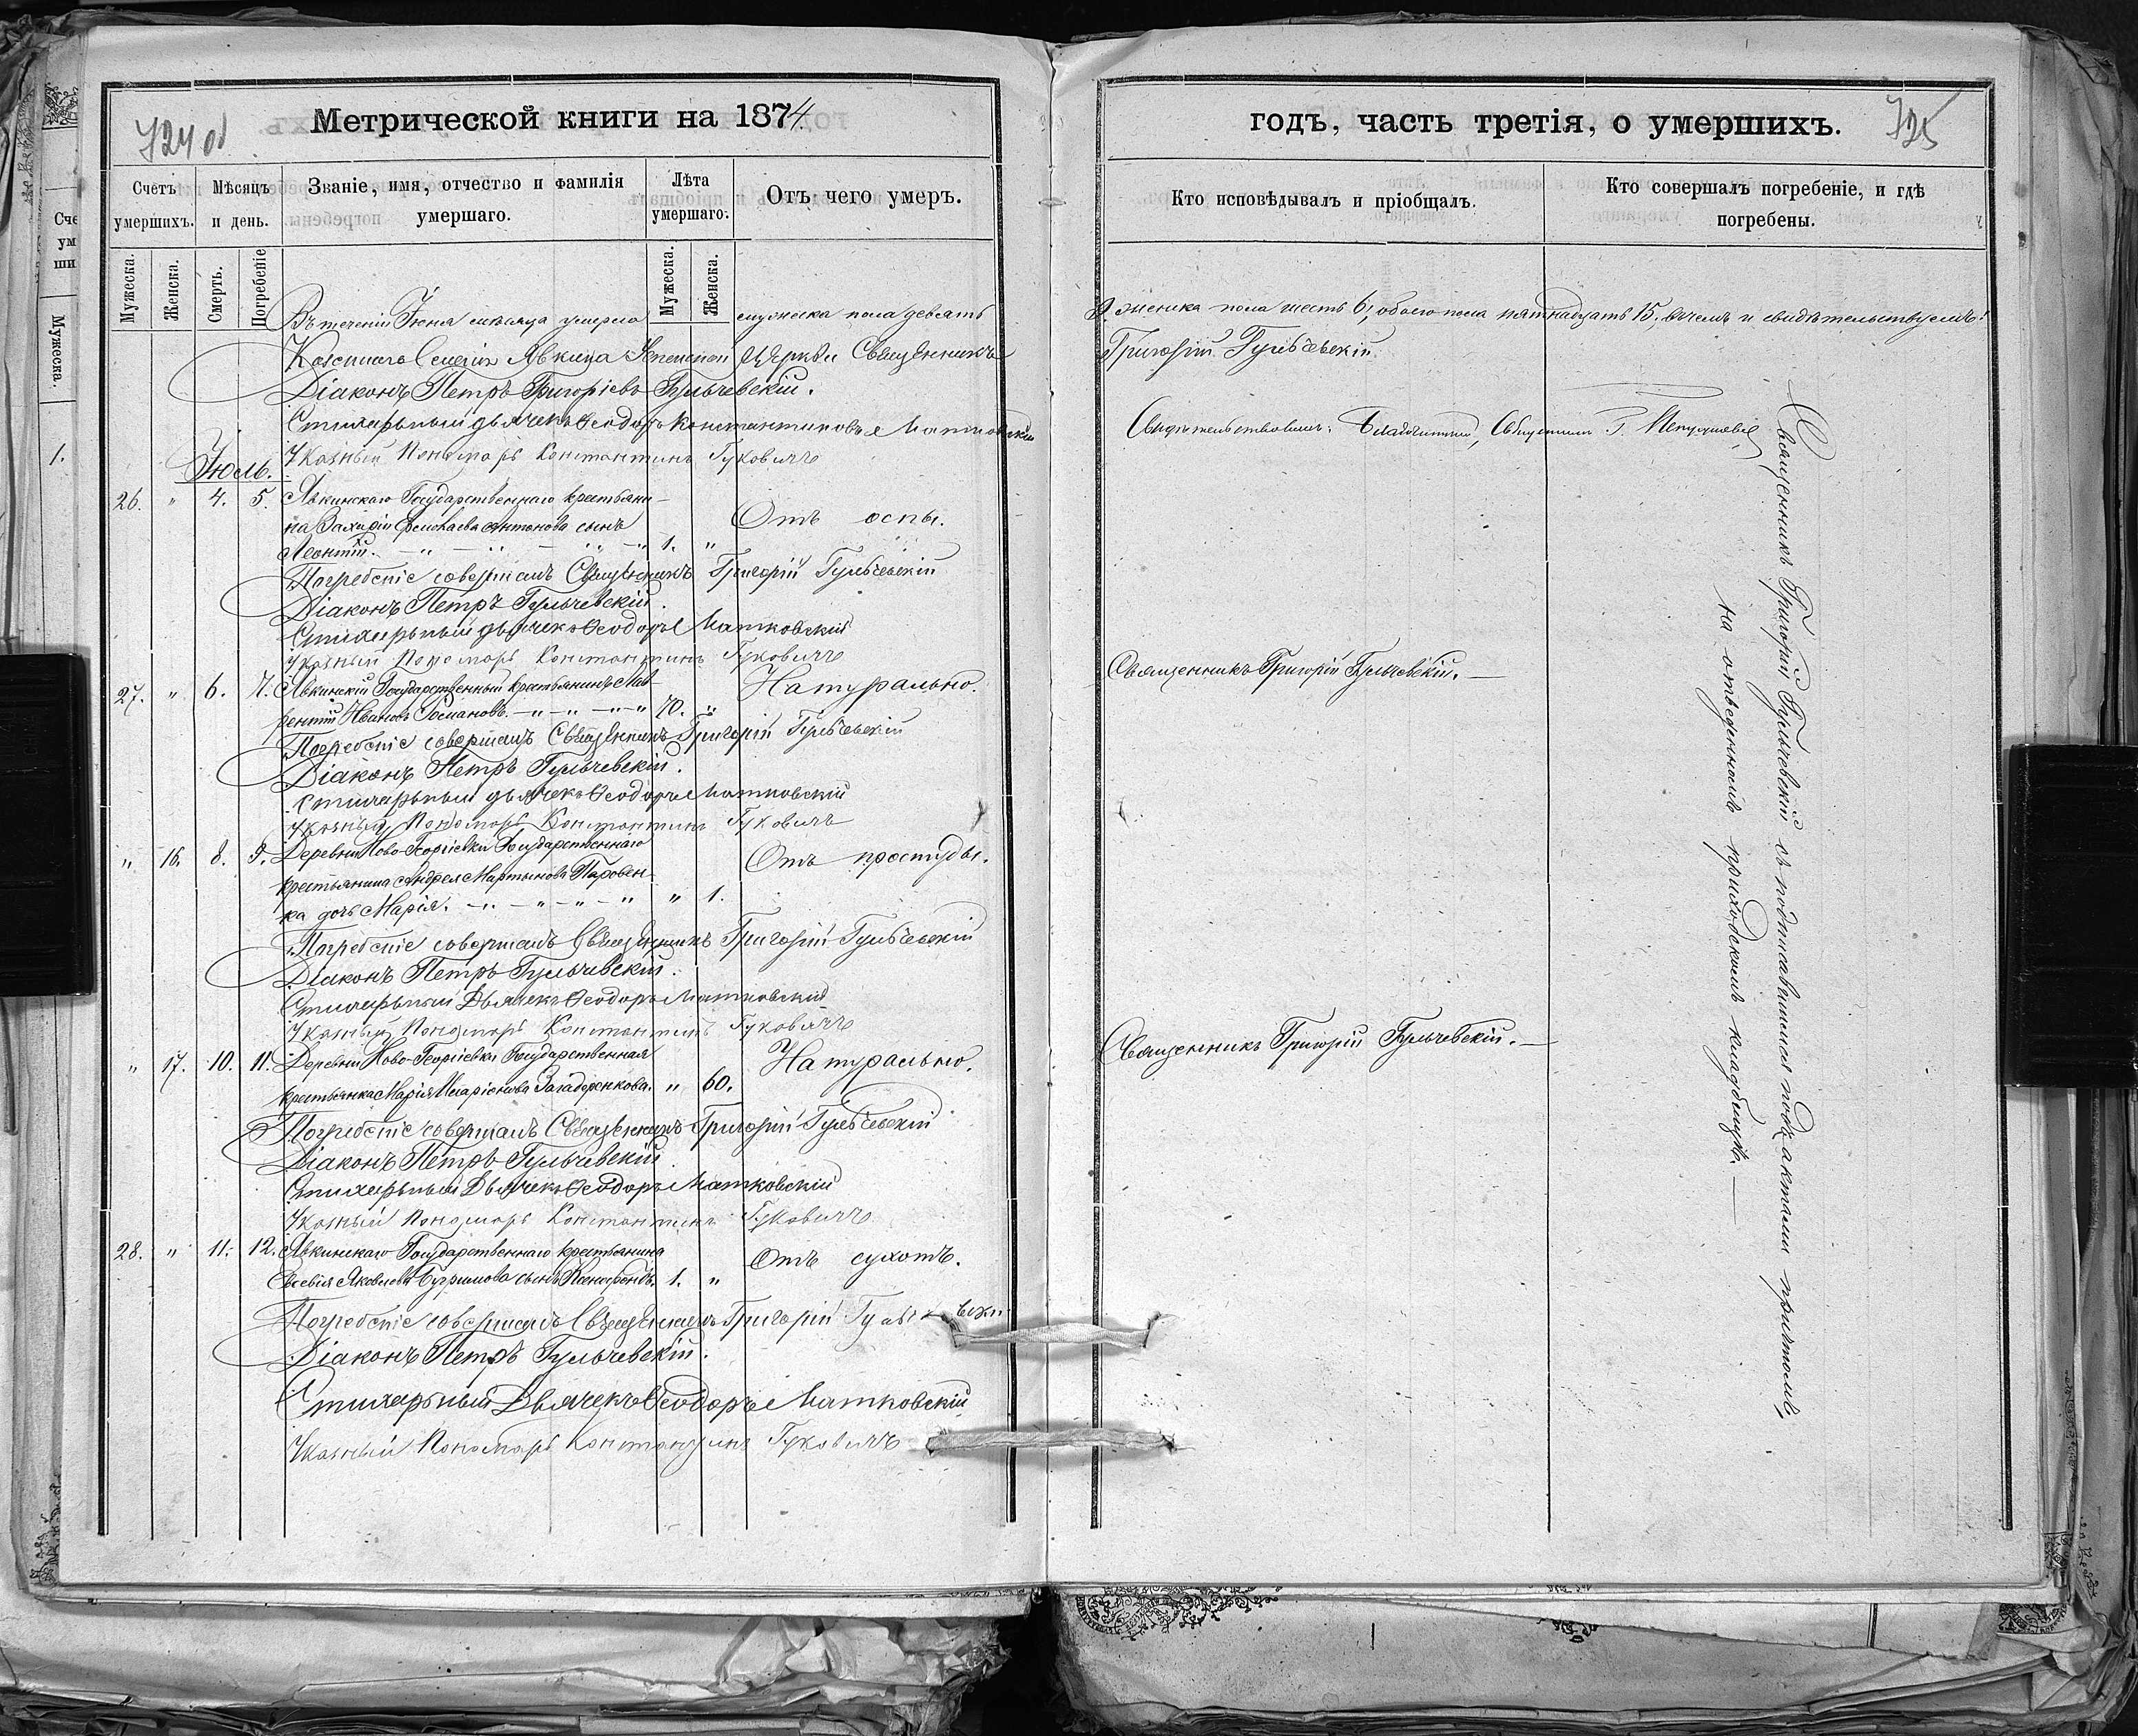 724 об
Метрической книги на 1874
Счетъ умершихъ.
Мѣсяцъ и день.
Званіе, имя, отчество и фамилія умершаго.
Лѣта умершаго.
Отъ чего умеръ.
Мужеска.
Женска.
Смерть.
Погребеніе
Мужеска.
Женска.
Въ теченіи Іюня мѣсяца умерло мужеска пола девять
Казеннаго Селенія Явкина Успенской Церкви Священникъ
Діаконъ Петръ Григоріевъ Гульчевскій.
Стихарьный дьячекъ Ѳеодоръ Константиновъ Матковскій
Указный Пономарь Константинъ Гуковичъ
Іюль.
26. " 4. 5. Явкинскаго Государственнаго крестьяни-
на Антонова сынъ Отъ оспы.
Леонтій. 1. "
Погребеніе совершалъ Священникъ Григорій Гульчевскій
Діаконъ Петръ Гульчевскій.
Стихарьный дьячекъ Ѳеодоръ Матковскій
Указный Пономарь Константинъ Гуковичъ
27. " 6. 7. Явкинскій Государственный крестьянинъ Лав- Натурально.
рентій Ивановъ Романовъ. 70. "
Погребеніе совершалъ Священникъ Григорій Гульчевскій
Діаконъ Петръ Гульчевскій.
Стихарьный дьячекъ Ѳеодоръ Матковскій
Указный Пономарь Константинъ Гуковичъ
" 16. 8. 9. Деревни Ново-Георгіевки Государственнаго Отъ простуды.
крестьянина Андрея Мартынова Паровен-
ка дочь Марія. " 1.
Погребеніе совершалъ Священникъ Григорій Гульчевскій
Діаконъ Петръ Гульчевскій.
Стихарьный Дьячекъ Ѳеодоръ Матковскій
Указный Пономарь Константинъ Гуковичъ
" 17. 10. 11. Деревни Ново-Георгіевки Государственная Натурально.
крестьянка Марія Иларіонова " 60.
Погребеніе совершалъ Священникъ Григорій Гульчевскій
Діаконъ Петръ Гульчевскій.
Стихарьный Дьячекъ Ѳеодоръ Матковскій
Указный Пономарь Константинъ Гуковичъ
28. " 11. 12. Явкинскаго Государственнаго крестьянина Отъ сухотъ.
Евсевія Яковлева сынъ Ксенофонтъ. 1. "
Погребеніе совершалъ Священникъ Григорій
Діаконъ Петръ Гульчевскій.
Стихарьный Дьячекъ Ѳеодоръ Матковскій
Указный Пономарь Константинъ Гуковичъ
годъ, часть третія, о умершихъ.
725
Кто исповѣдывалъ и пріобщалъ.
Кто совершалъ погребеніе, и гдѣ погребены.
женска пола шесть 6, обоего пола пятнадцать 15. въ чемъ и свидѣтельствуемъ:
Григорій Гульчевскій
Свидѣтельствовалъ: Благочинный, Священникъ Г.
Священникъ Григорій Гульчевскій.
Священникъ Григорій Гульчевскій.
Священникъ Григорій Гульчевскій съ подписавшимся подъ актами причтомъ,
на отведенномъ приходскомъ кладбищѣ.
Сче
ум
ши
Мужеска.
1.